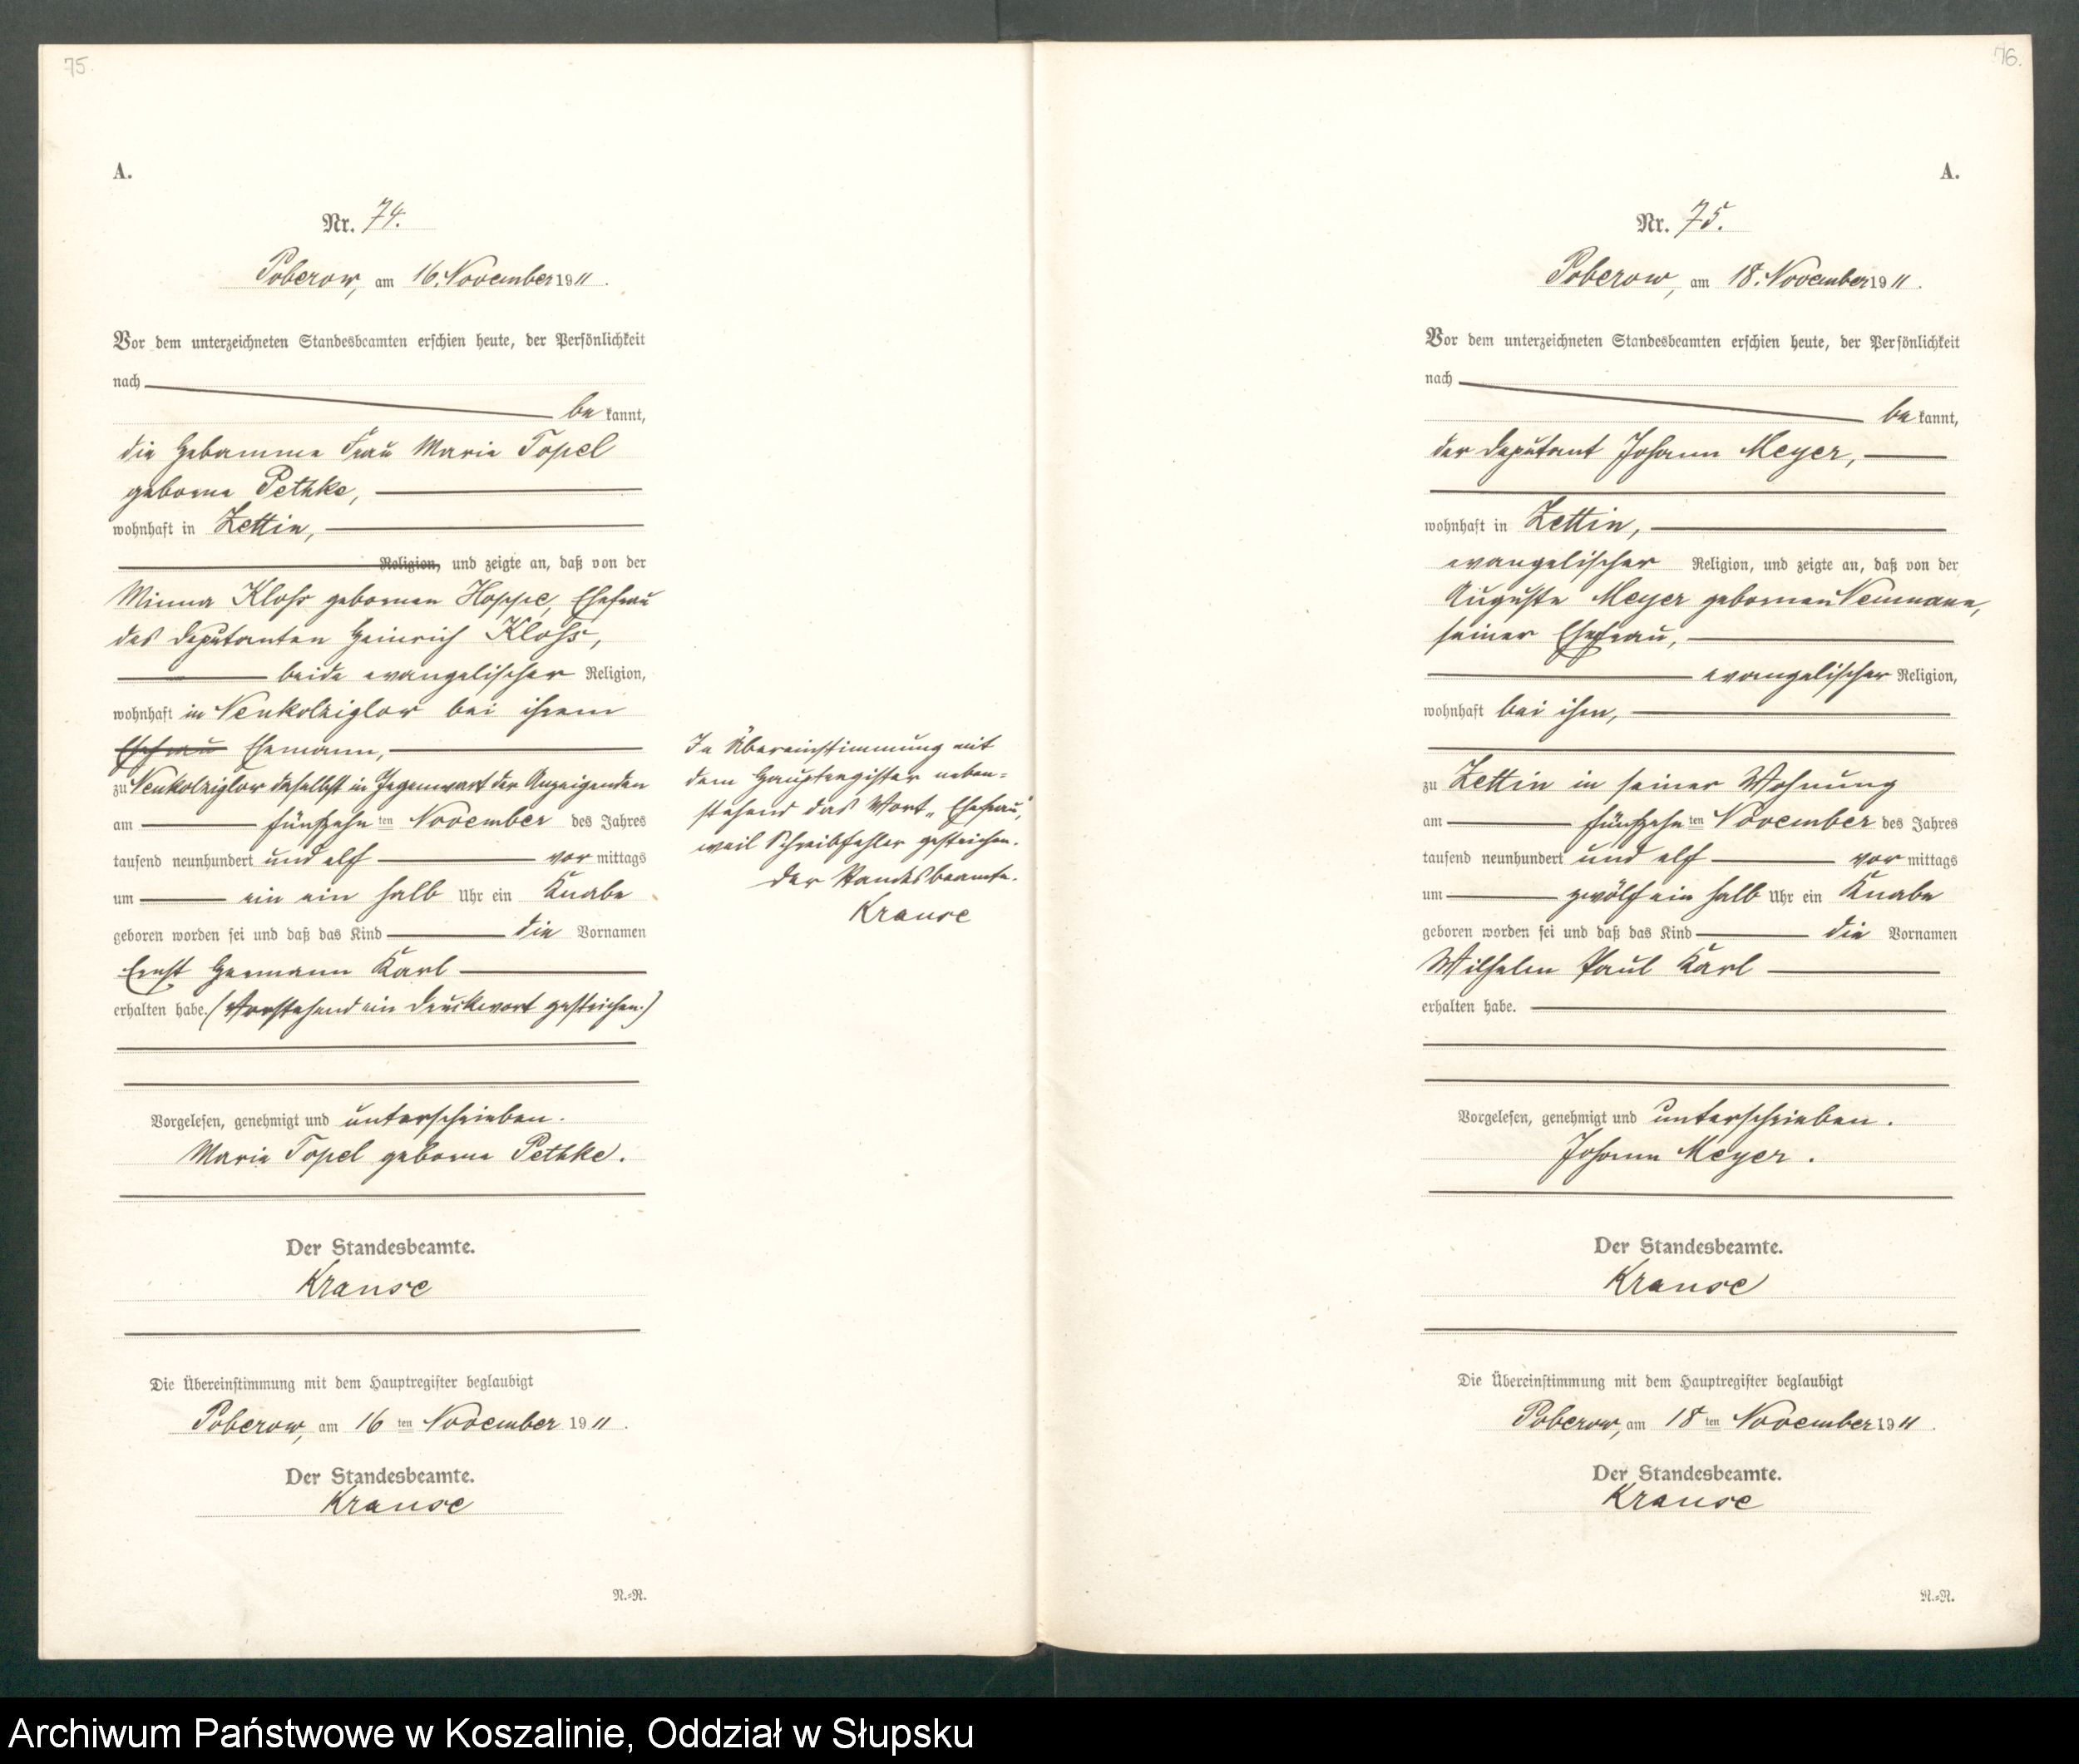 75.
A.
Nr. 74.
Poberow, am 16. November 1911.
Vor dem unterzeichneten Standesbeamten erschien heute, der Persönlichkeit
nach
be kannt,
die Hebamme Frau Marie Topel
geborne Pethke,
wohnhaft in Zettin,
Religion, und zeigte an, daß von der
Minna Kloß gebornen Hoppe, Ehefrau
des Deputanten Heinrich Kloß,
beide evangelischer Religion,
wohnhaft in Neukolziglow bei ihrem
Ehefrau Ehemann,
zu Neukolziglow daselbst in Gegenwart der Anzeigenden
am fünfzehn ten November des Jahres
tausend neunhundert und elf vor mittags
um ein ein halb Uhr ein Knabe
geboren worden sei und daß das Kind die Vornamen
Ernst Hermann Karl
erhalten habe. (Vorstehend ein Druckwort gestrichen.)
Vorgelesen, genehmigt und unterschrieben.
Marie Topel geborne Pethke.
Der Standesbeamte.
Krause
Die Übereinstimmung mit dem Hauptregister beglaubigt
Poberow, am 16 ten November 1911.
Der Standesbeamte.
Krause
N.=R.
In Übereinstimmung mit
dem Hauptregister neben=
stehend das Wort „Ehefrau",
weil Schreibfehler gestrichen.
Der Standesbeamte.
Krause
76.
A.
Nr. 75.
Poberow, am 18. November 1911.
Vor dem unterzeichneten Standesbeamten erschien heute, der Persönlichkeit
nach
be kannt,
der Deputant Johann Meyer,
wohnhaft in Zettin,
evangelischer Religion, und zeigte an, daß von der
Auguste Meyer gebornen Neumann,
seiner Ehefrau,
evangelischer Religion,
wohnhaft bei ihm,
zu Zettin in seiner Wohnung
am fünfzehn ten November des Jahres
tausend neunhundert und elf vor mittags
um zwölf ein halb Uhr ein Knabe
geboren worden sei und daß das Kind die Vornamen
Wilhelm Paul Karl
erhalten habe.
Vorgelesen, genehmigt und unterschrieben.
Johann Meyer.
Der Standesbeamte.
Krause
Die Übereinstimmung mit dem Hauptregister beglaubigt
Poberow, am 18 ten November 1911.
Der Standesbeamte.
Krause
N.=R.
Archiwum Państwowe w Koszalinie, Oddział w Słupsku